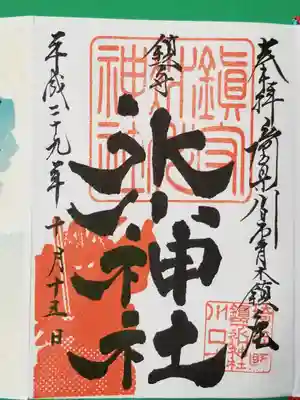 奉拝 埼玉県川口市青木鎮座
鎮守
氷川神社
平成二十九年 十月十五日
鎮守
氷川
神社